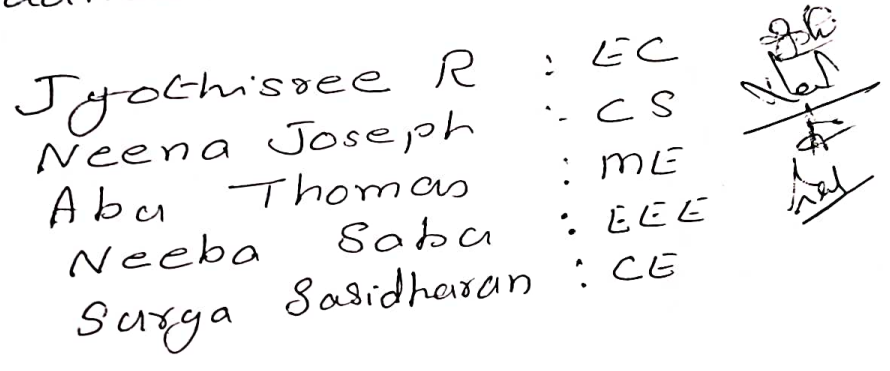 Jyothisree R : EC
Neena Joseph : CS
Abu Thomas : ME
Neeba Sabu : EEE
Surya Sasidharan : CE